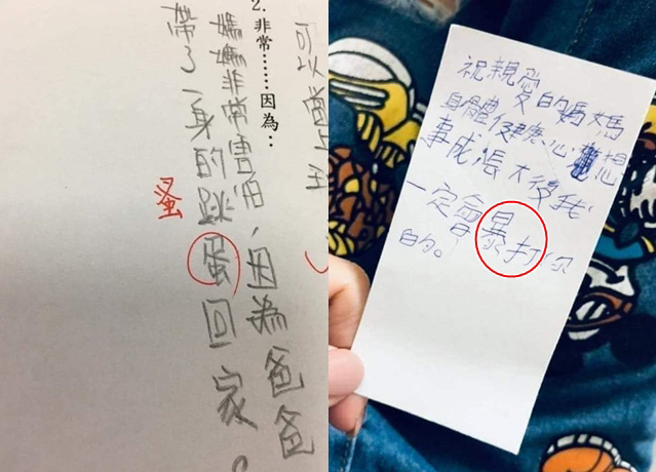 可以當上
2. 非常……因為…
媽媽非常害怕,因為爸爸
帶了一身的跳蛋回家。
蚤
祝親愛的媽媽
身體健康心想
事成,張大後我
一定會暴打你
的。